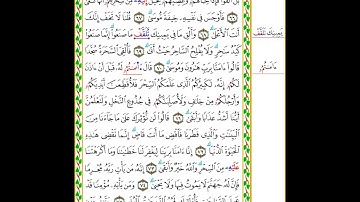 بَلْ أَلْقُوا۟ فَإِذَا حِبَالُهُمْ وَعِصِيُّهُمْ يُخَيَّلُ إِلَيْهِ مِن سِحْرِهِمْ أَنَّهَا
فَأَوْجَسَ فِى نَفْسِهِۦ خِيفَةً مُّوسَىٰ قُلْنَا لَا تَخَفْ إِنَّكَ
أَنتَ ٱلْأَعْلَىٰ وَأَلْقِ مَا فِى يَمِينِكَ تَلَقَّفْ مَا صَنَعُوٓا۟ إِنَّمَا صَنَعُوا۟
كَيْدُ سَٰحِرٍ وَلَا يُفْلِحُ ٱلسَّاحِرُ حَيْثُ أَتَىٰ فَأُلْقِىَ ٱلسَّحَرَةُ سُجَّدًا
قَالُوٓا۟ ءَامَنَّا بِرَبِّ هَٰرُونَ وَمُوسَىٰ قَالَ ءَا۬مَنتُمْ لَهُۥ قَبْلَ أَنْ ءَاذَنَ
لَكُمْ إِنَّهُۥ لَكَبِيرُكُمُ ٱلَّذِى عَلَّمَكُمُ ٱلسِّحْرَ فَلَأُقَطِّعَنَّ أَيْدِيَكُمْ
وَأَرْجُلَكُم مِّنْ خِلَٰفٍ وَلَأُصَلِّبَنَّكُمْ فِى جُذُوعِ ٱلنَّخْلِ وَلَتَعْلَمُنَّ
أَيُّنَآ أَشَدُّ عَذَابًا وَأَبْقَىٰ قَالُوا۟ لَن نُّؤْثِرَكَ عَلَىٰ مَا جَآءَنَا مِنَ
ٱلْبَيِّنَٰتِ وَٱلَّذِى فَطَرَنَا فَٱقْضِ مَآ أَنتَ قَاضٍ إِنَّمَا تَقْضِى هَٰذِهِ
ٱلْحَيَوٰةَ ٱلدُّنْيَآ إِنَّآ ءَامَنَّا بِرَبِّنَا لِيَغْفِرَ لَنَا خَطَٰيَٰنَا وَمَآ أَكْرَهْتَنَا
عَلَيْهِ مِنَ ٱلسِّحْرِ وَٱللَّهُ خَيْرٌ وَأَبْقَىٰٓ إِنَّهُۥ مَن يَأْتِ رَبَّهُۥ مُجْرِمًا
فَإِنَّ لَهُۥ جَهَنَّمَ لَا يَمُوتُ فِيهَا وَلَا يَحْيَىٰ وَمَن يَأْتِهِۦ مُؤْمِنًا قَدْ
يَمِينِكَ تَلَقَّفْ
ءَا۬مَنتُمْ